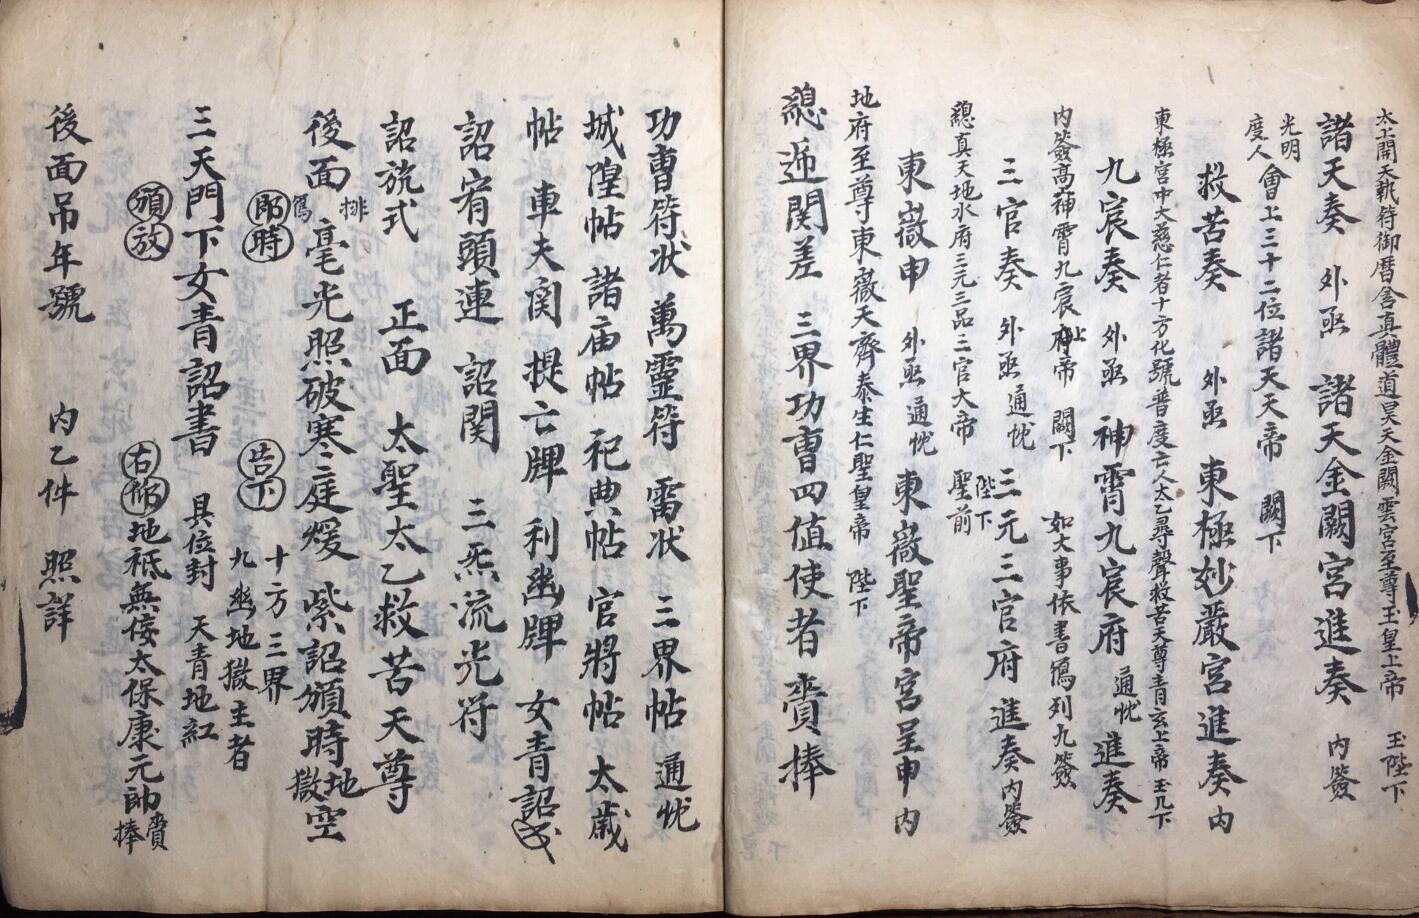 太上開天執符御曆含真體道昊天金闕雲宮至尊玉皇上帝 玉陛下
諸天奏 外函 諸天金闕宮進奏 內簽
光明
度人會上三十二位諸天天帝 闕下
救苦奏 外函 東極妙嚴宮進奏 內
東極宮中大慈仁者十方化號普度亡人太乙尋聲救苦天尊青玄上帝 玉几下
九宸奏 外函 神霄九宸府 通忱 進奏
內簽高神霄九宸府帝 闕下 如大事依書寫列九簽
三官奏 外函 通忱 三元三官府 進奏 內簽
總真天地水府三元三品三官大帝 陛下 聖前
東嶽申 外函 通忱 東嶽聖帝宮呈申 內
地府至尊東嶽天齊泰生仁聖皇帝 陛下
總遞関差 三界功曹四值使者 賫捧
功曹符狀 萬靈符 雷狀 三界帖 通忱
城隍帖 諸庙帖 祀典帖 官將帖 太歲
帖 車夫関 提亡牌 利幽牌 女青詔
詔宥頭連 詔関 三炁流光符
詔旒式 正面 太聖太乙救苦天尊
後面 排寫 毫光照破寒庭煖 紫詔頒時地獄空
即時 苦下 十方三界
九幽地獄主者
三天門下女青詔書 具位封 天青地紅
頒放 右仰 地祇無佞太保康元帥 賫捧
後面吊年號 內乙件 照詳